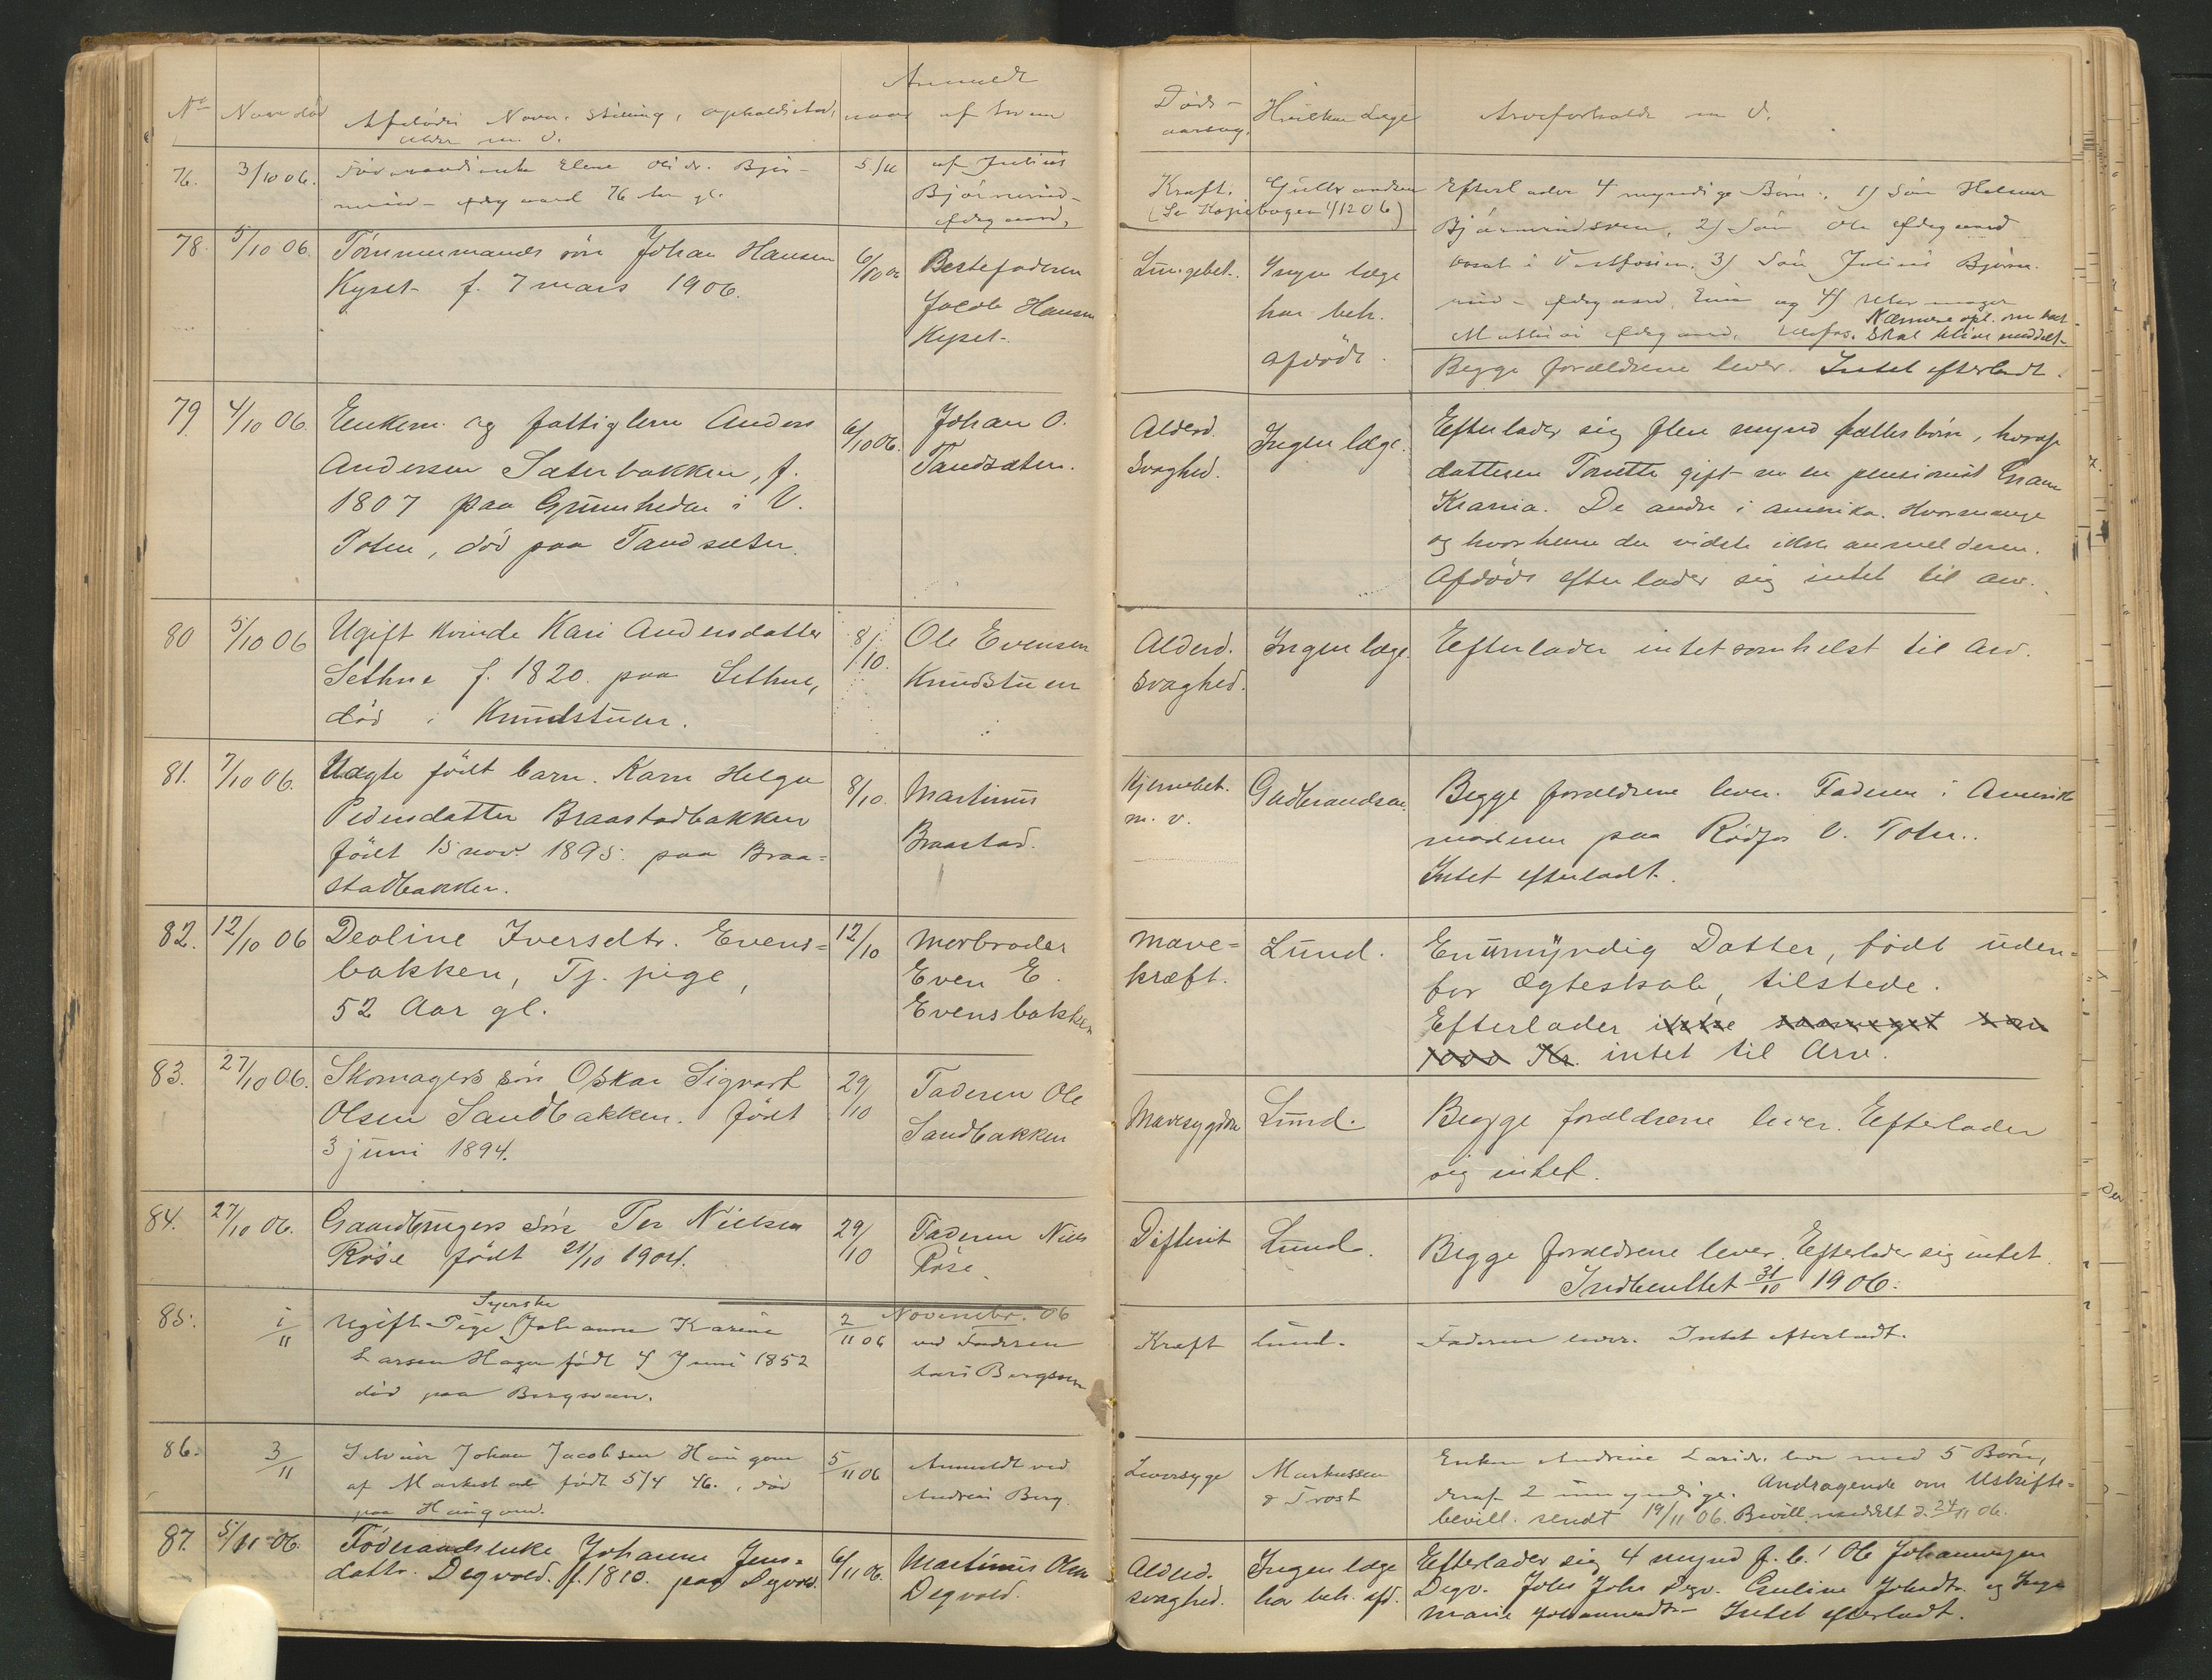 No
Naar død
Afdødes Navn, Stilling, Opholdssted,
Alder m. v.
Anmeldt
naar
af hvem
Døds-
aarsag.
Hvilken Læge
Arveforholde m. v.
76.
3/10 06.
Føderaadsenke Elene Olsdr. Bjør-
76 Aar gl.
af Julius
Kræft.
Gulbrandsen
(Se Kopiebogen 1/12 06)
Efterlader 4 myndige Børn: 1) Søn
2) Søn Ole Ødegaard
3) Søn Julius Bjørn-
og 4)
Nærmere opl. om
skal blive meddelt
78.
5/10 06.
Tømmermands søn Johan Hansen
Kyset f. 7 mars 1906.
6/10 06
Bestefaderen
Jacob Hansen
Kyset.
Lungebet.
Ingen læge
har beh.
afdøde.
Begge forældrene lever. Intet efterladt.
79.
4/10 06.
Enkem. og fattiglem Anders
Andersen Sæterbakken, f.
1807 paa Grimsheden i V.
Toten, død paa Tandsæter.
6/10 06.
Johan O.
Tandsæter.
Alderd.
svaghed.
Ingen læge.
Efterlader sig flere mynd fællesbørn, hvoraf
datteren Torette gift m en pensionist
Krania. De andre i amerika. Hvormange
og hvor henne de vidste ikke anmelderen.
Afdøde efterlader sig intet til arv.
80
5/10 06
Ugift kvinde Kari Andersdatter
Sethne f. 1820 paa Sethne,
død i Knudstuen.
8/10.
Ole Evensen
Knudstuen
Alderd.
svaghed.
Ingen læge.
Efterlader intetsomhelst til arv.
81.
7/10 06.
Uægte født barn. Karn Helga
Pedersdatter Braastadbakken
født 15 nov. 1895 paa Braa-
stadbakken.
8/10.
Martinus
Braastad.
Hjernebet.
m. v.
Gudbrandsen.
Begge forældrene lever. Faderen i Amerika
moderen paa Rødfos V. Toten.
Intet efterladt.
82.
12/10 06
Deoline Iversdtr. Evens=
bakken, Tj. pige,
52 Aar gl.
12/10
Morbroder
Even E.
Evensbakken
Mave=
kræft.
Lund.
En umyndig Datter, født uden-
for Ægteskab, tilstede.
Efterlader ikke saameget som
1000 Kr. intet til Arv.
83.
27/10 06.
Skomagers søn Oskar Sigvart
Olsen Sandbakken. født
3 juni 1894.
29/10
Faderen Ole
Sandbakken
Mavesygdom
Lund.
Begge forældrene lever. Efterlader
sig intet.
84.
27/10 06.
Gaardbrugers søn Per Nielsen
Røise født 21/10 1904.
29/10
Faderen Niels
Røise.
Difterit
Lund.
Begge forældrene lever. Efterlader sig intet.
Indberettet 31/10 1906.
Novembr. 06
85.
1/11
Syerske
Ugift Pige Johanne Karine
Larsen Hagen født 4 Juni 1852
død paa Bergsveen.
2/11 06
ved Faderen
Lars Bergsveen
Kræft
Lund.
Faderen lever. Intet efterladt.
86.
3/11
Johan Jacobsen Haugom
født 5/4 46., død
paa Haugom.
5/11 06
Anmeldt ved
Andreas Berg.
Leversyge
Markussen
& Frost
Enken Andrine Larsdr. lever med 5 Børn,
deraf 2 umyndige. Andragende om Uskifte-
bevill. sendt 19/11 06. Bevill. meddelt d. 24/11 06.
87.
5/11 06.
Føderaadsenke Johanne Jens-
dattr. Degvold. f. 1810. paa Degvold.
6/11 06.
Martinus Olsen
Degvold.
Alderd.
svaghed.
Ingen læge
har beh. afd.
Efterlader sig 4 mynd f. b.: Ole Johannesen
Degv. Johs Johs Degv. Eveline Johsdtr. og Inge
Marie Johannesdtr. Intet efterladt.